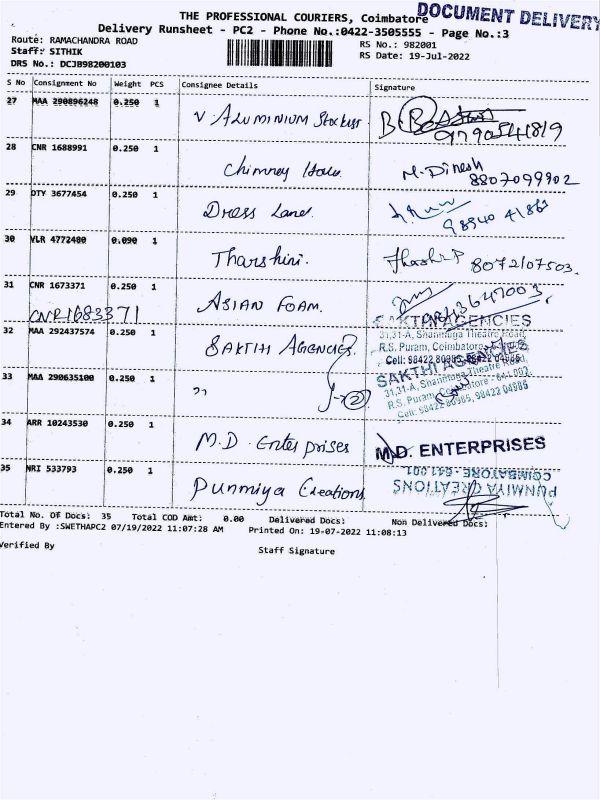 THE PROFESSIONAL COURIERS, Coimbatore
DOCUMENT DELIVERY
Delivery Runsheet - PC2 - Phone No.:0422-3505555 - Page No.:3
Route: RAMACHANDRA ROAD
RS No.: 982001
Staff: SITHIK
RS Date: 19-Jul-2022
DRS No.: DCJB98200103
S No Consignment No Weight PCS Consignee Details Signature
27 MAA 290896248 0.250 1 V ALUMINIUM Stockist
9790541819
28 CNR 1688991 0.250 1 Chimney M. Dinesh
8807099902
29 DTY 3677454 0.250 1 Dress Land.
98840 41863
30 VLR 4772480 0.090 1 Tharshini. 8072107503.
31 CNR 1673371 0.250 1 ASIAN FOAM.
CNR1683371
SAKTHI AGENCIES
32 MAA 292437574 0.250 1 SAKTHI AGENCIES.
31,31-A, Shanmuga Theatre Road,
R.S. Puram, Coimbatore
Cell: 98422 80985, 98422 04985
33 MAA 290635100 0.250 1 "
2
SAKTHI AGENCIES
31,31-A, Shanmuga Theatre Road,
R.S. Puram, Coimbatore - 641 002.
Cell: 98422 80985, 98422 04985
34 ARR 10243530 0.250 1 M.D. Enterprises
M.D. ENTERPRISES
35 NRI 533793 0.250 1 Punmiya Creations
PUNMIYA CREATIONS
COIMBATORE - 641 001
Total No. Of Docs: 35 Total COD Amt: 0.00 Delivered Docs: Non Delivered Docs:
Entered By :SWETHAPC2 07/19/2022 11:07:28 AM Printed On: 19-07-2022 11:08:13
Verified By
Staff Signature